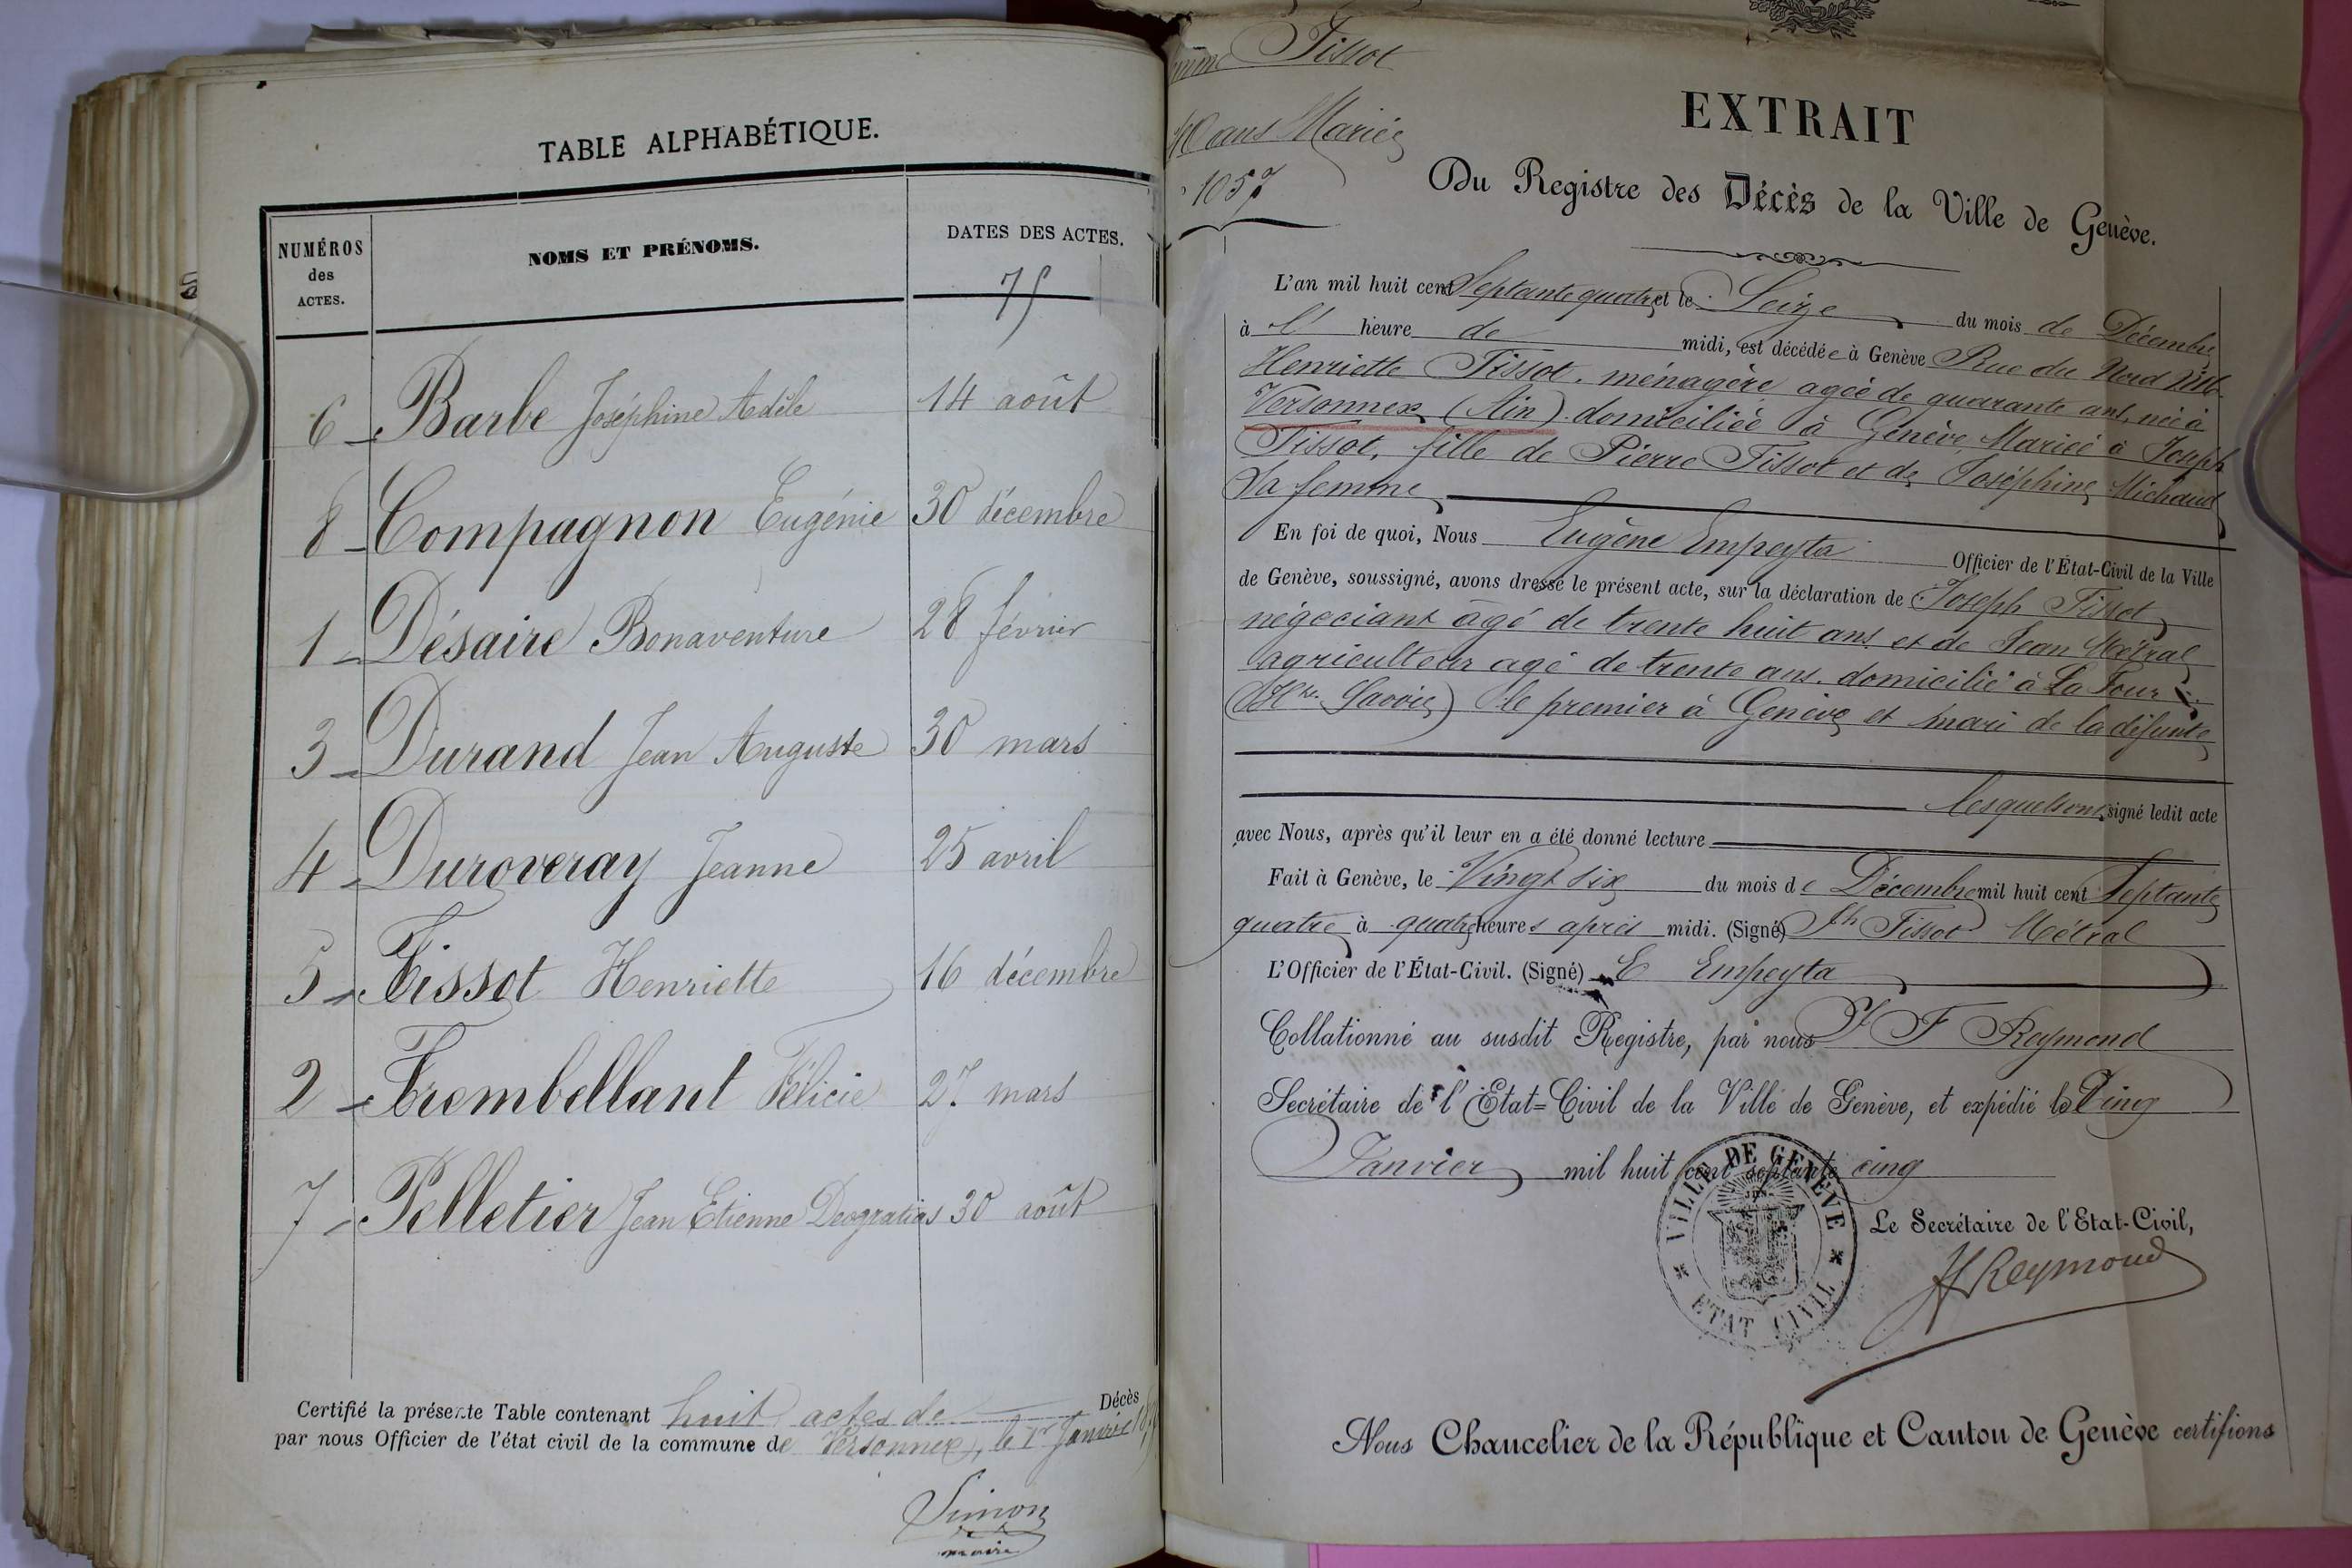 TABLE ALPHABÉTIQUE.
NUMÉROS des ACTES.
NOMS ET PRÉNOMS.
DATES DES ACTES.
75
6 Barbe Joséphine Adèle 14 août
8 Compagnon Eugénie 30 décembre
1 Désaire Bonaventure 28 février
3 Durand Jean Auguste 30 mars
4 Duroveray Jeanne 25 avril
5 Tissot Henriette 16 décembre
2 Trembellant Félicie 27 mars
7 Pelletier Jean Etienne Deogratias 30 août
Certifié la présente Table contenant huit actes de Décès
par nous Officier de l'état civil de la commune de Versonnex, le 1er Janvier
Simon
maire
Tissot
40 ans Mariée
1057
EXTRAIT
Du Registre des Décès de la Ville de Genève.
L'an mil huit cent Septante quatre et le Seize du mois de Décembre
à l' heure de midi, est décédée à Genève Rue du Nord
Henriette Tissot, ménagère agée de quarante ans, née à
Versonnex (Ain) domiciliée à Genève Mariée à Joseph
Tissot, fille de Pierre Tissot et de Joséphine Michaud
Sa femme
En foi de quoi, Nous Eugène Empeyta Officier de l'État-Civil de la Ville
de Genève, soussigné, avons dressé le présent acte, sur la déclaration de Joseph Tissot
négociant âgé de trente huit ans et de Jean Métral
agriculteur agé de trente ans. domicilié à La Tour
(Hte. Savoie) le premier à Genève et mari de la défunte
lesquels ont signé ledit acte
avec Nous, après qu'il leur en a été donné lecture
Fait à Genève, le Vingt six du mois de Décembre mil huit cent Septante
quatre à quatre heures après midi. (Signé) Jh Tissot Métral
L'Officier de l'État-Civil. (Signé) E Empeyta
Collationné au susdit Registre, par nous F Reymond
Secrétaire de l'Etat-Civil de la Ville de Genève, et expédié le Cinq
Janvier mil huit cent septante cinq
VILLE DE GENÈVE
ETAT CIVIL
Le Secrétaire de l'Etat-Civil,
Reymond
Nous Chancelier de la République et Canton de Genève certifions